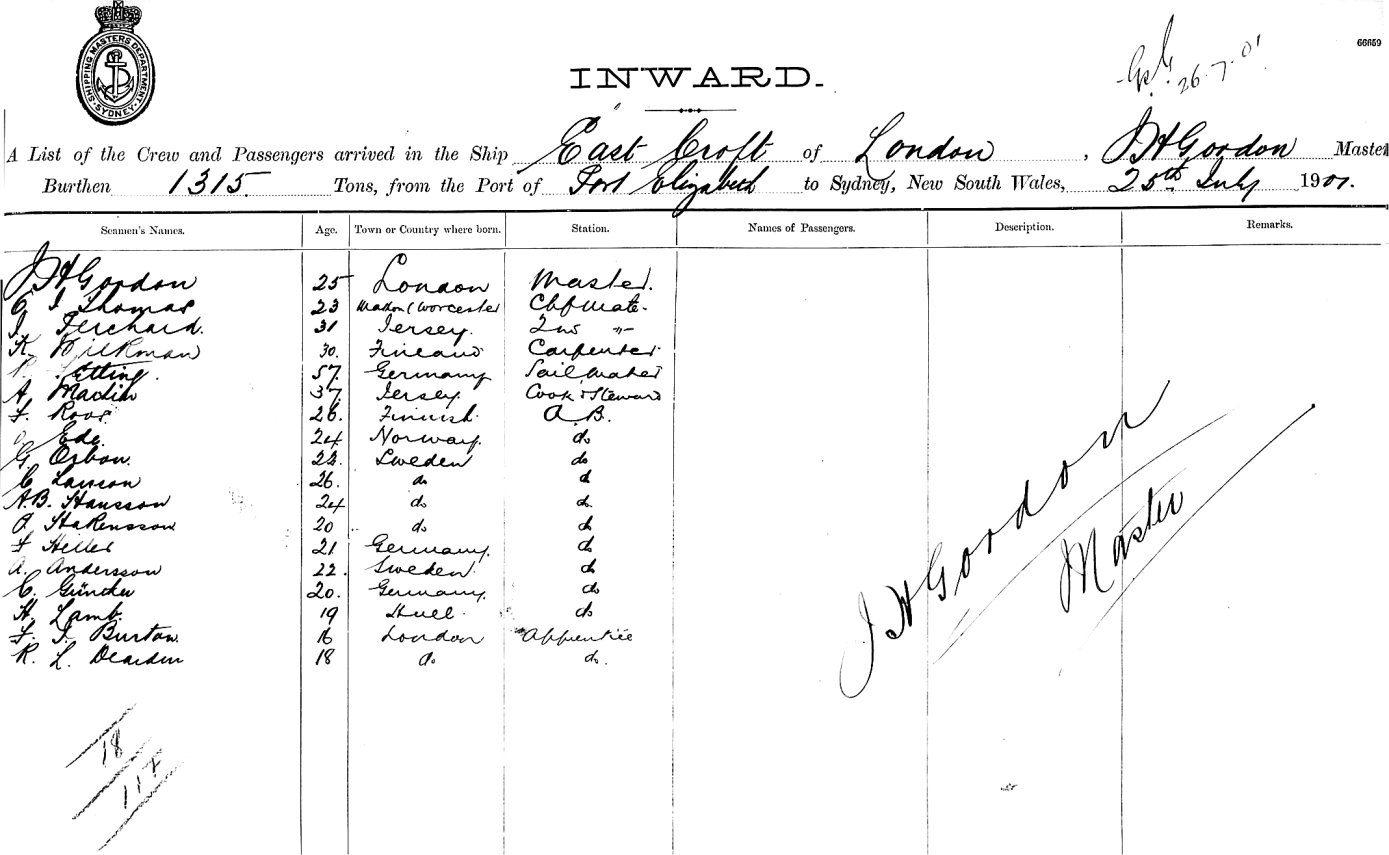 SHIPPING MASTERS DEPARTMENT. SYDNEY
66659
26.7.01
INWARD.
A List of the Crew and Passengers arrived in the Ship East Croft of London, J H Gordon Master
Burthen 1315 Tons, from the Port of Port Elizabeth to Sydney, New South Wales, 25th July 1901.
Seamen's Names. Age. Town or Country where born. Station. Names of Passengers. Description. Remarks.
J H Gordon 25 London Master.
C. J. Thomas 23 (Worcester Chf Mate.
J. Terchard. 31 Jersey. 2nd "
K. Wilkman 30. Finland Carpenter
Etting. 57. Germany Sailmaker
A. Machin 37. Jersey. Cook & Steward
F. Roos 26. Finnish. A.B.
Ede. 24 Norway. do
G. Osbon. 22. Sweden do
C. Larson 26. do do
A.B. Hansson 24 do. do.
O. Hakensson 20 do. do
F Heller 21 Germany. do
A. Andersson 22. Sweden. do
C. Günther 20. Germany. do
H. Lamb. 19 Hull. do
F. J. Burton. 16 London Apprentice
R. L. Dearden 18 do. do.
J H Gordon
Master
18
117